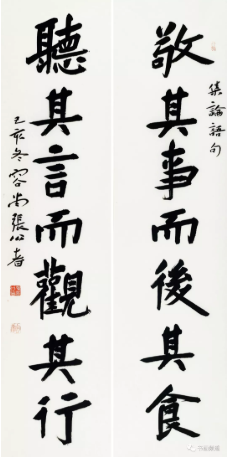 集論語句
敬其事而後其食
聽其言而觀其行
己亥冬容尚張公者